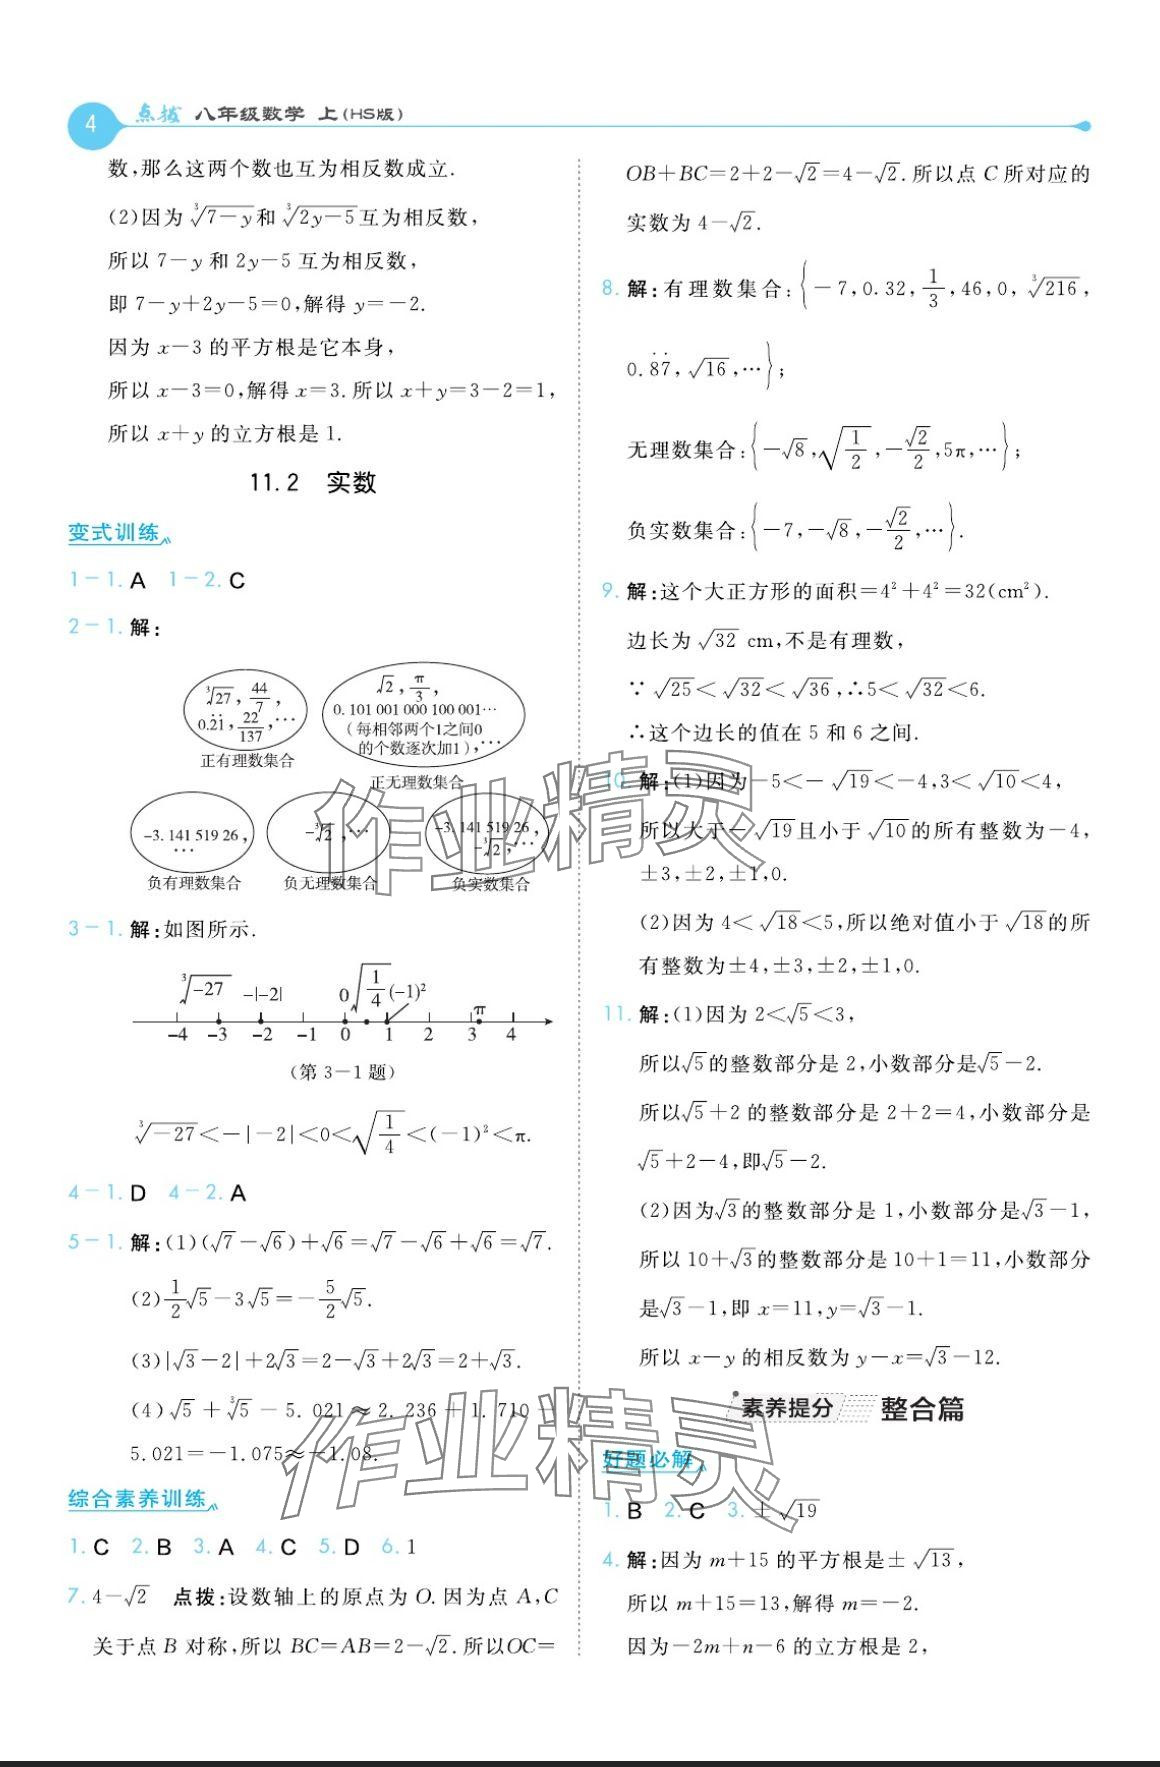 4 点拨 八年级数学 上(HS版)
数,那么这两个数也互为相反数成立.
(2)因为∛(7-y)和∛(2y-5)互为相反数,
所以 7-y 和 2y-5 互为相反数,
即 7-y+2y-5=0,解得 y=-2.
因为 x-3 的平方根是它本身,
所以 x-3=0,解得 x=3.所以 x+y=3-2=1,
所以 x+y 的立方根是 1.
11.2 实数
变式训练
1-1. A 1-2. C
2-1. 解:
∛27, 44/7, 0.2̇1̇, 22/137, …
正有理数集合
√2, π/3,
0.101 001 000 100 001…
(每相邻两个1之间0
的个数逐次加1),…
正无理数集合
-3.141 519 26,
…
负有理数集合
-∛2,…
负无理数集合
-3.141 519 26,
-∛2,…
负实数集合
3-1. 解:如图所示.
∛-27 -|-2| 0 √(1/4) (-1)² π
-4 -3 -2 -1 0 1 2 3 4
(第 3-1 题)
∛-27<-|-2|<0<√(1/4)<(-1)²<π.
4-1. D 4-2. A
5-1. 解:(1)(√7-√6)+√6=√7-√6+√6=√7.
(2)1/2√5-3√5=-5/2√5.
(3)|√3-2|+2√3=2-√3+2√3=2+√3.
(4)√5+∛5-5.021≈2.236+1.710-
5.021=-1.075≈-1.08.
综合素养训练
1. C 2. B 3. A 4. C 5. D 6. 1
7. 4-√2 点拨:设数轴上的原点为 O.因为点 A,C
关于点 B 对称,所以 BC=AB=2-√2.所以OC=
OB+BC=2+2-√2=4-√2.所以点 C 所对应的
实数为 4-√2.
8. 解:有理数集合:{-7,0.32,1/3,46,0,∛216,
0.8̇7̇,√16,…};
无理数集合:{-√8,√(1/2),-√2/2,5π,…};
负实数集合:{-7,-√8,-√2/2,…}.
9. 解:这个大正方形的面积=4²+4²=32(cm²).
边长为 √32 cm,不是有理数,
∵ √25<√32<√36,∴5<√32<6.
∴这个边长的值在 5 和 6 之间.
10. 解:(1)因为-5<-√19<-4,3<√10<4,
所以大于-√19且小于√10的所有整数为-4,
±3,±2,±1,0.
(2)因为 4<√18<5,所以绝对值小于√18的所
有整数为±4,±3,±2,±1,0.
11. 解:(1)因为 2<√5<3,
所以√5的整数部分是 2,小数部分是√5-2.
所以√5+2 的整数部分是 2+2=4,小数部分是
√5+2-4,即√5-2.
(2)因为√3的整数部分是 1,小数部分是√3-1,
所以 10+√3的整数部分是10+1=11,小数部分
是√3-1,即 x=11,y=√3-1.
所以 x-y 的相反数为 y-x=√3-12.
素养提分 整合篇
好题必解
1. B 2. C 3. ±√19
4. 解:因为 m+15 的平方根是±√13,
所以 m+15=13,解得 m=-2.
因为-2m+n-6 的立方根是 2,
作业精灵
作业精灵